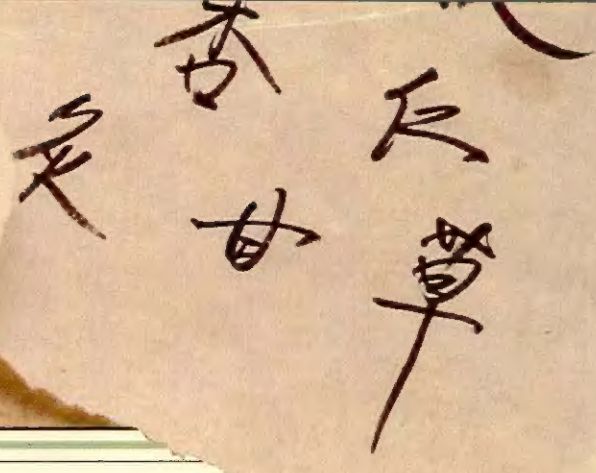 杏仁
炙甘草